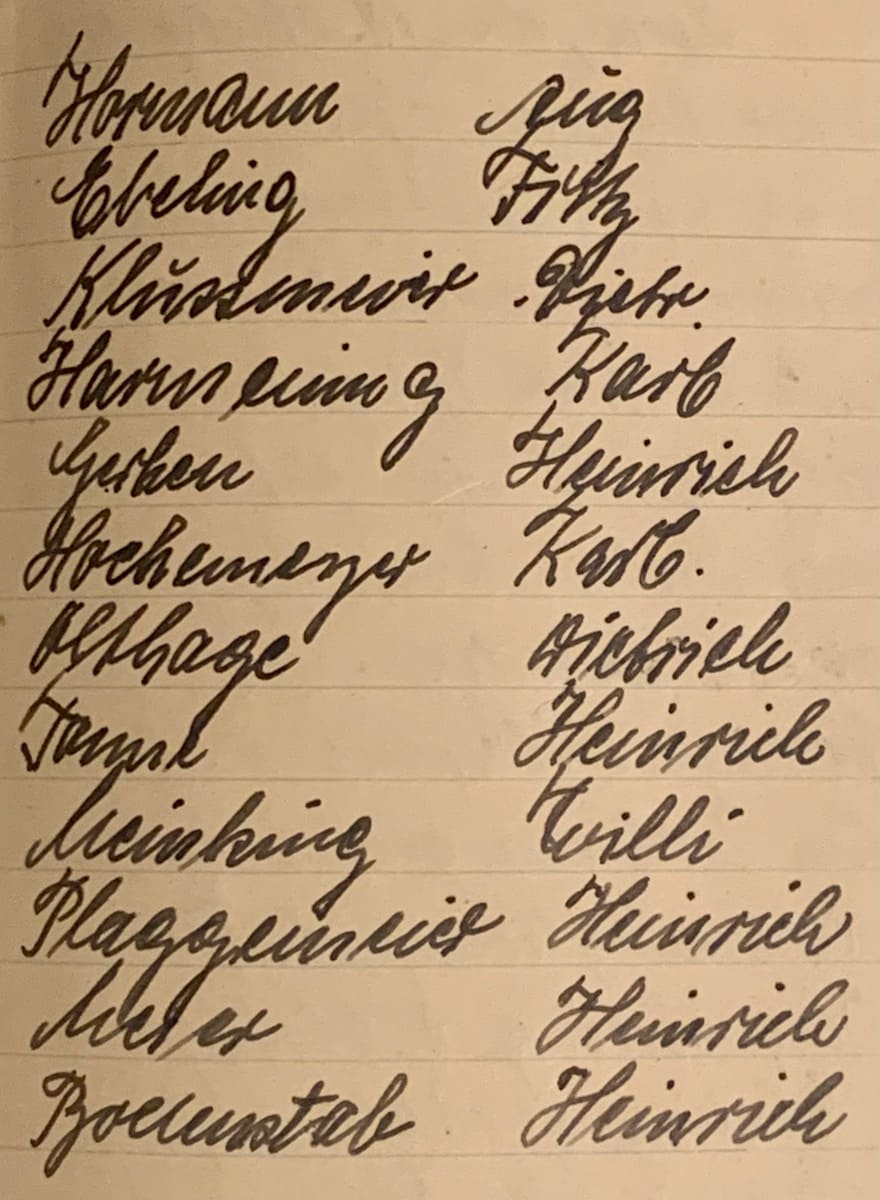 Hormann Aug
Ebeling Fritz
Klussmeier Dietr.
Harmening Karl
Gerken Heinrich
Hochemeyer Karl.
Olthage Dietrich
Tonne Heinrich
Meinking Willi
Plaggemeier Heinrich
Meier Heinrich
Heinrich